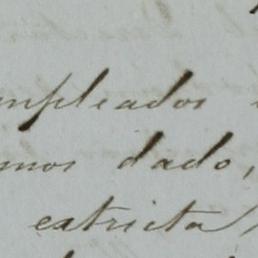 empleados
mos dado,
estricta